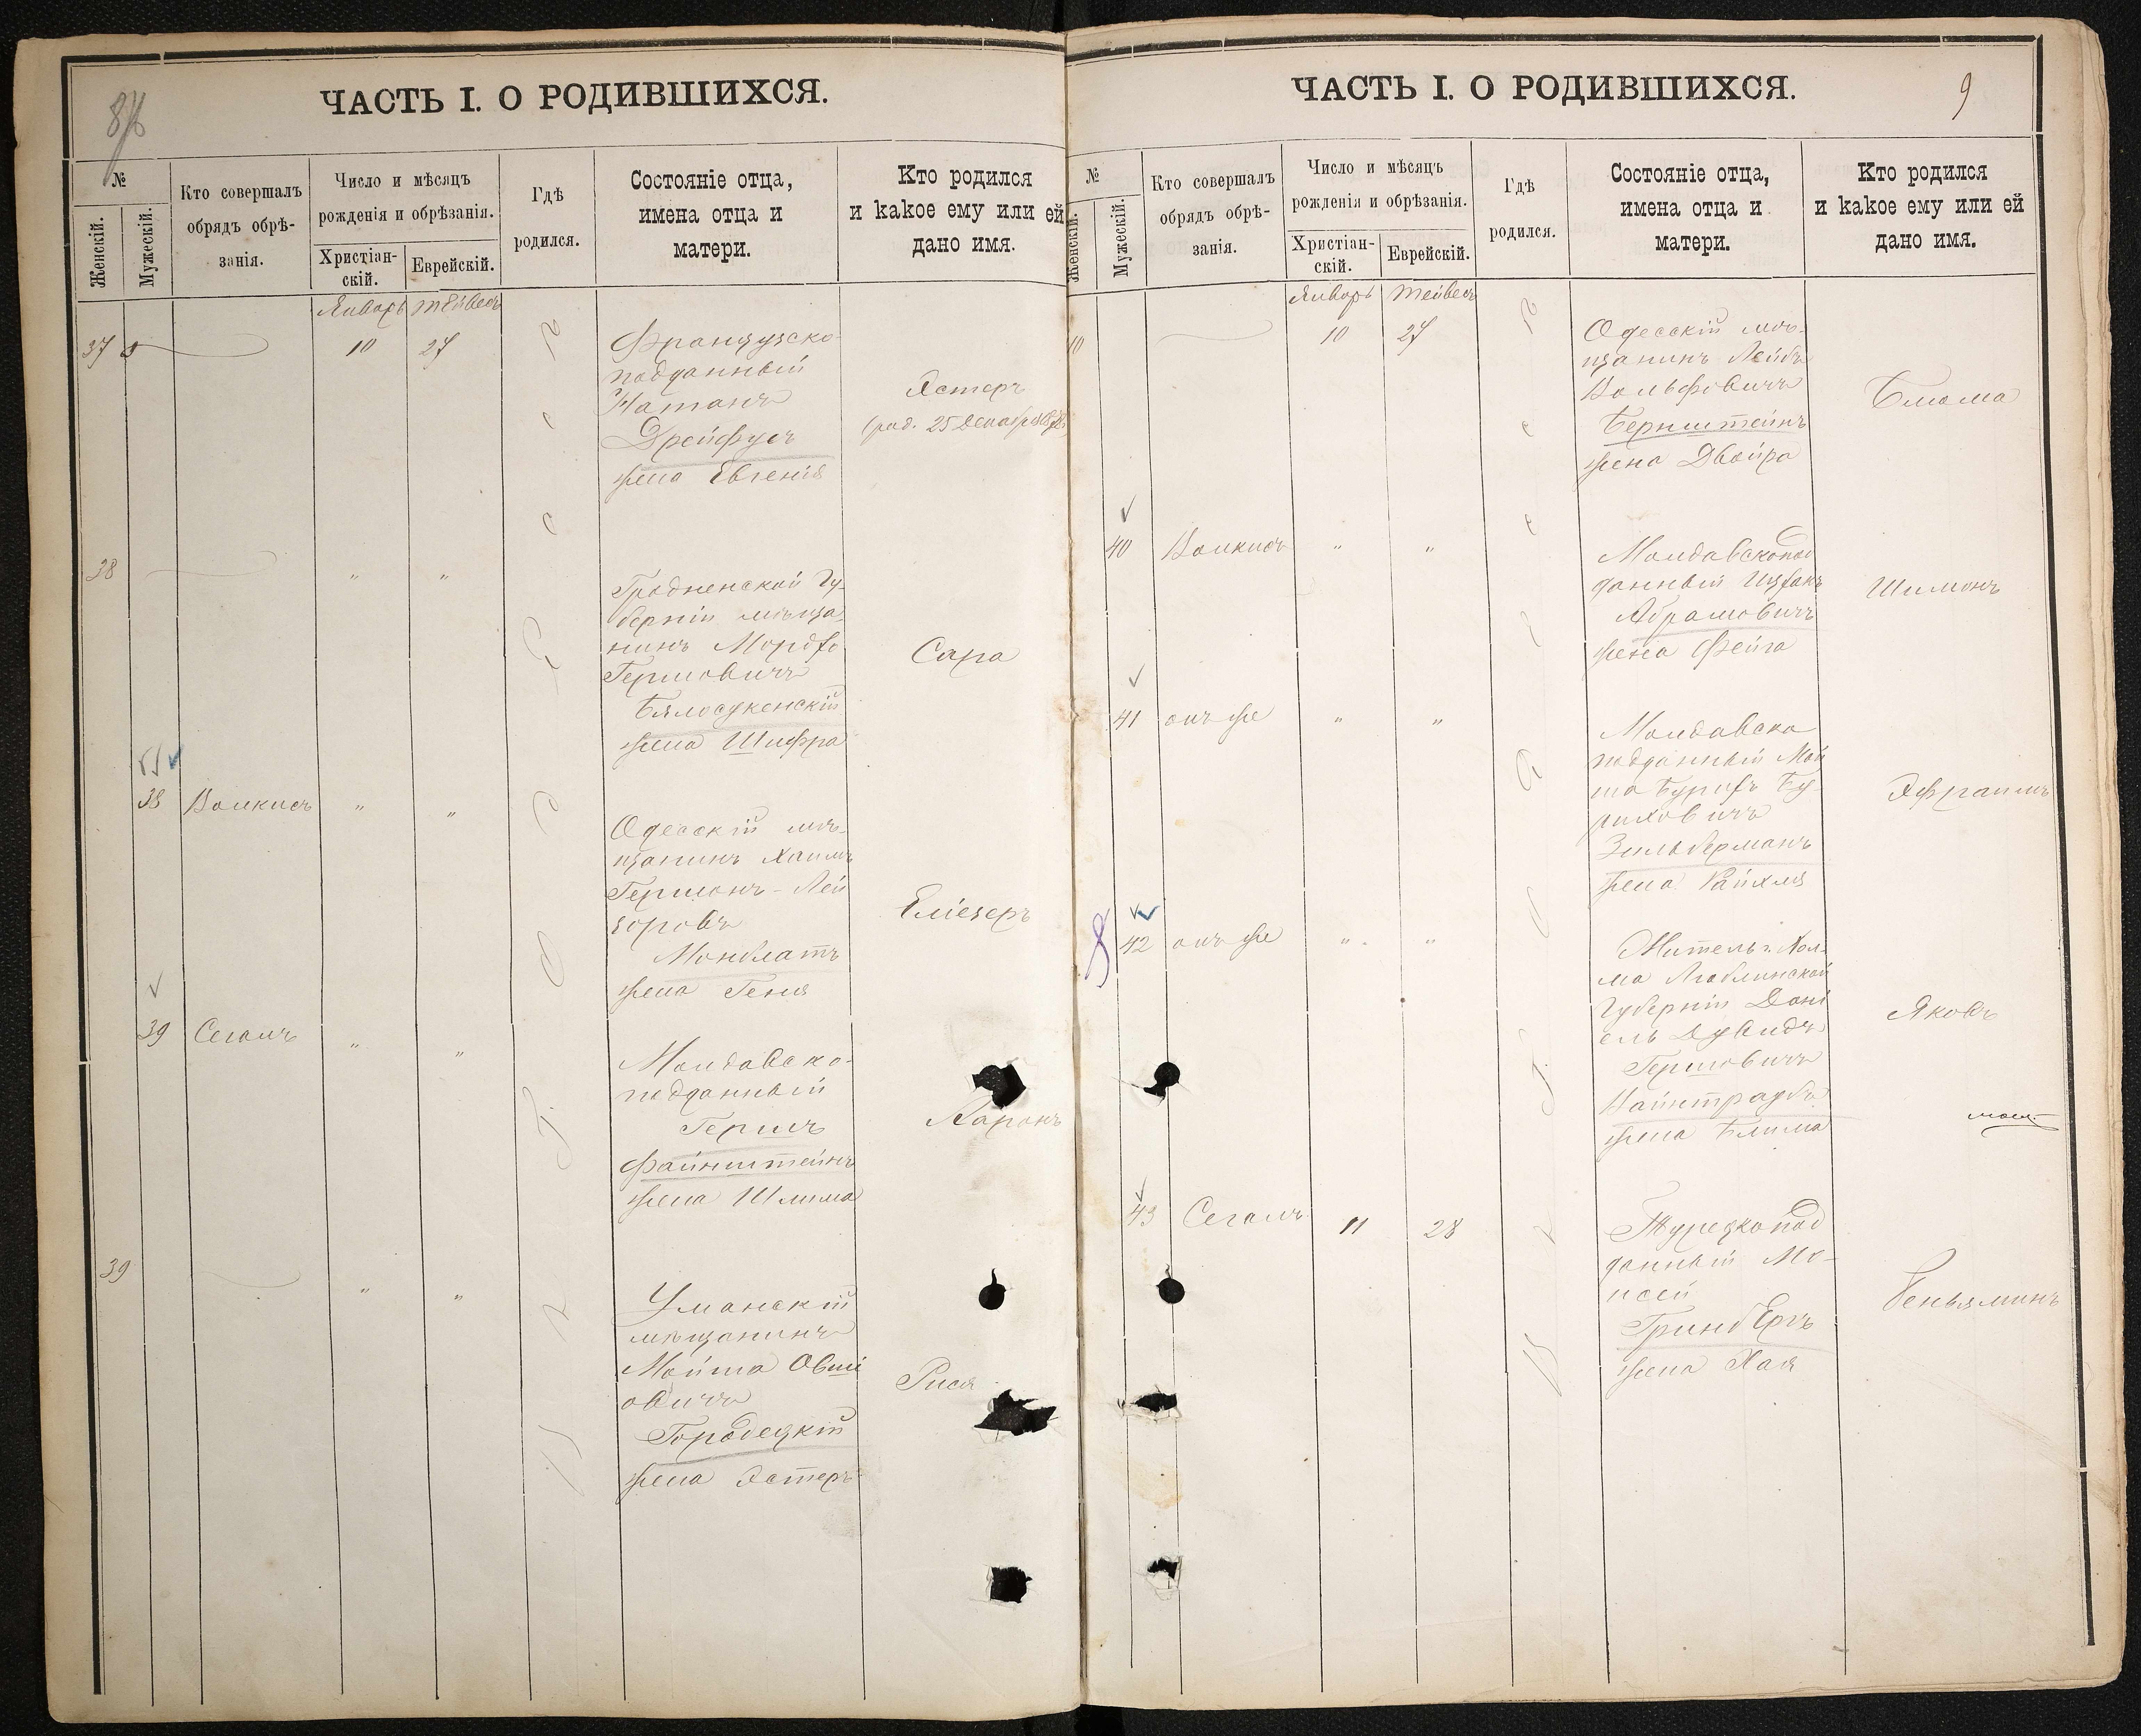 ЧАСТЬ I. О РОДИВШИХСЯ.
№
Женскій.
Мужескій.
Кто совершалъ
обрядъ обрѣ-
занія.
Число и мѣсяцъ
рожденія и обрѣзанія.
Христіан-
скій.
Еврейскій.
Гдѣ
родился.
Состояніе отца,
имена отца и
матери.
Кто родился
и какое ему или ей
дано имя.
Январь Тейвесъ
37
10 27
Французско-
подданный
Натанъ
Дрейфусъ
жена Евгенія
Эстеръ
(род. 25 Декабря
38
" "
Гродненской Гу-
берніи мѣща-
нинъ Мордхо
Гершовичъ
жена Шифра
Сара
38 Волкисъ " "
Одесскій мѣ-
щанинъ Хаимъ
Гершонъ-Лей
зоровъ
Монблатъ
жена Геня
Еліезеръ
39 Сегалъ " "
Молдавско-
подданный
Гершъ
Файнштейнъ
жена Шлима
Ааронъ
39
" "
Уманскій
мѣщанинъ
Мойша Овші
овичъ
Городецкій
жена Эстеръ
Рися
ЧАСТЬ I. О РОДИВШИХСЯ.
9
№
Женскій.
Мужескій.
Кто совершалъ
обрядъ обрѣ-
занія.
Число и мѣсяцъ
рожденія и обрѣзанія.
Христіан-
скій.
Еврейскій.
Гдѣ
родился.
Состояніе отца,
имена отца и
матери.
Кто родился
и какое ему или ей
дано имя.
Январь Тейвесъ
10 27
Одесскій мѣ-
щанинъ Лейбъ
Вольфовичъ
Бернштейнъ
жена Двойра
Блюма
40 Волкисъ " "
Молдавскопод
данный Ицхокъ
Абрамовичъ
жена Фейга
Шимонъ
41 онъ же " "
Молдавско
подданный Мой
ша Бурихъ Бу-
риховичъ
Зильберманъ
жена Райхля
Эфраимъ
42 онъ же " "
Житель г. Хол-
ма Люблинской
Губерніи Дані
ель Дувидъ
Гершовичъ
Вайнтраубъ
жена Блима
Яковъ
43 Сегалъ 11 28
Турецкопод
данный Мо-
исей
Гринбергъ
жена Хая
Беньяминъ